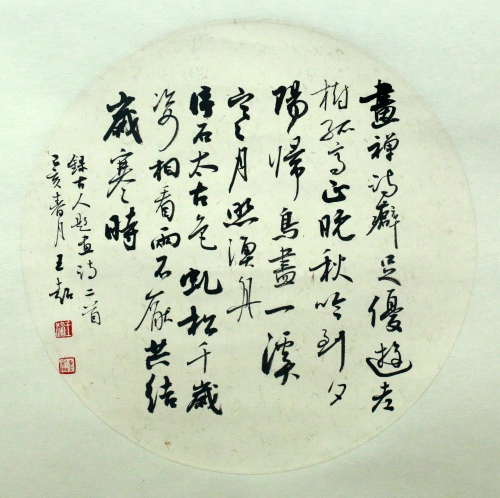 畫禪詩癖足優遊老
樹孤亭正晚秋吟到夕
陽歸鳥盡一溪
寒月照漁舟
片石太古色虬松千歲
姿相看兩不厭共結
歲寒時
錄古人題画詩二首
己亥春月 王